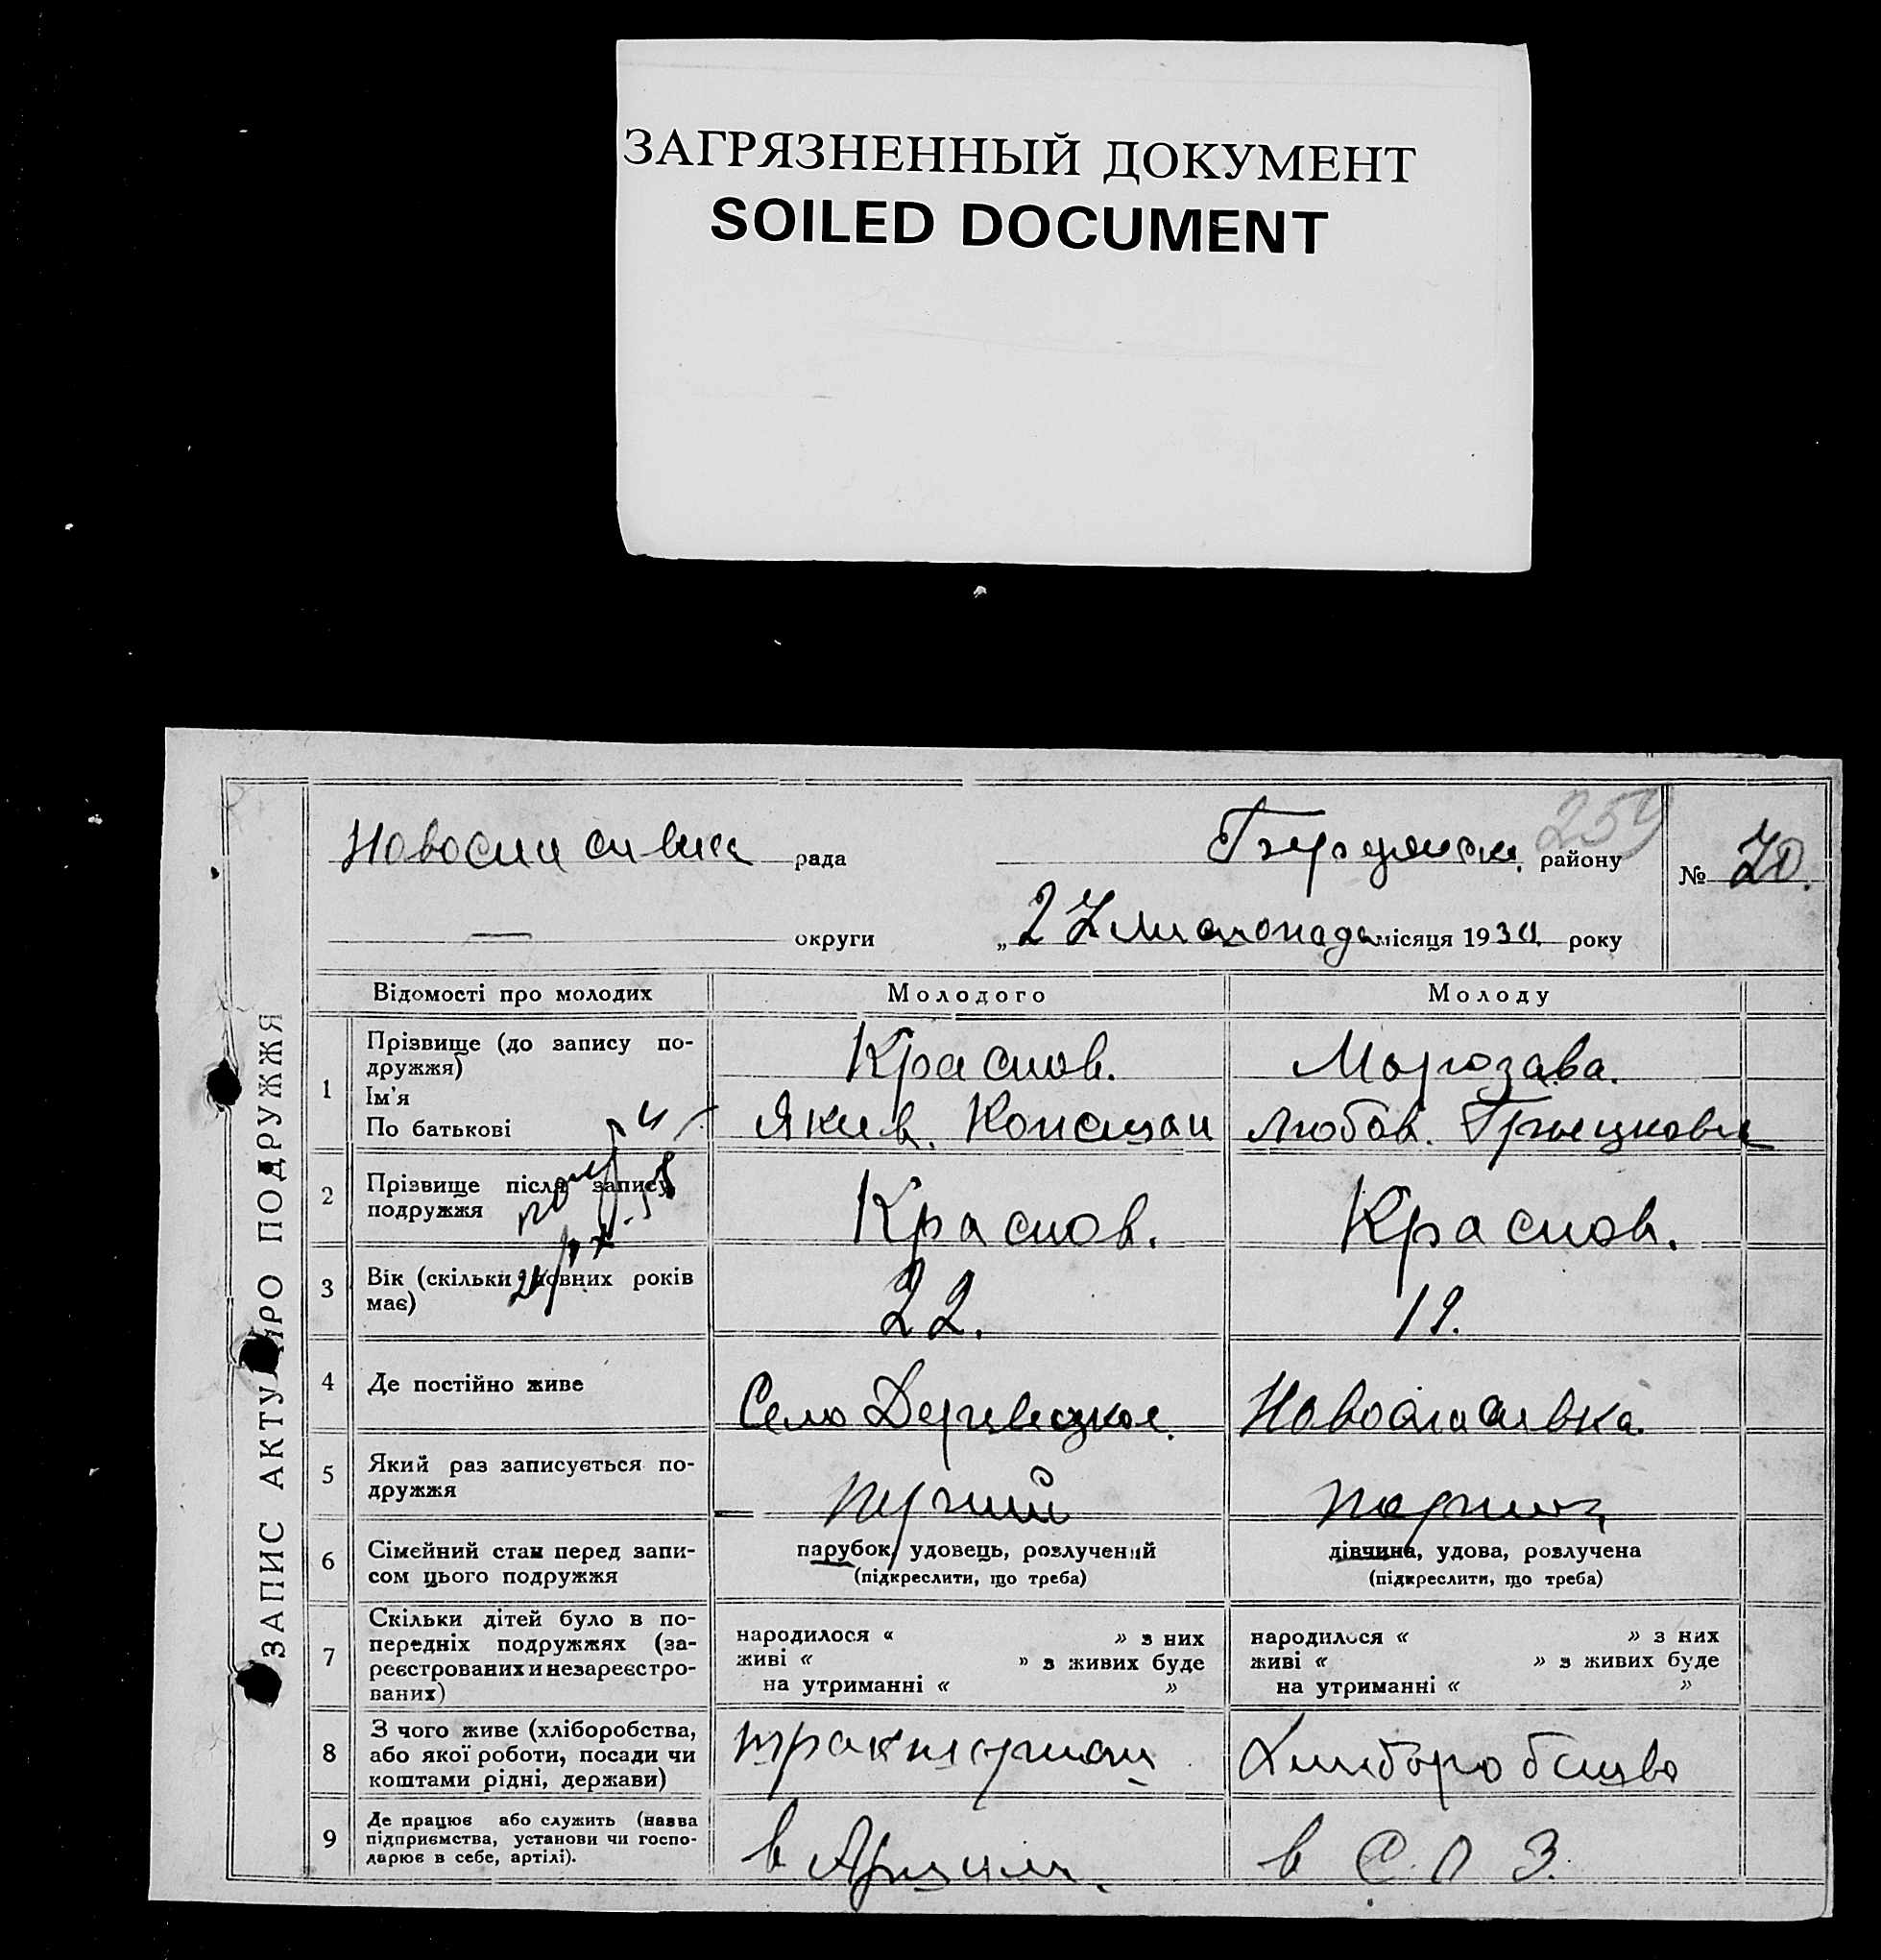 ЗАГРЯЗНЕННЫЙ ДОКУМЕНТ
SOILED DOCUMENT
259
рада району № 20.
округи „27 листопада місяця 1934 року
ЗАПИС АКТУ ПРО ПОДРУЖЖЯ
Відомості про молодих Молодого Молоду
1 Прізвище (до запису по- Краснов. Морозава.
дружжя)
Ім'я
По батькові Якив. Любов.
2 Прізвище після запису Краснов. Краснов.
подружжя
3 Вік (скільки повних років 22. 19.
має)
4 Де постійно живе Село
5 Який раз записується по- перший
дружжя
6 Сімейний стан перед запи- парубок, удовець, розлучений дівчина, удова, розлучена
сом цього подружжя (підкреслити, що треба) (підкреслити, що треба)
7 Скільки дітей було в по- народилося « » з них народилося « » з них
передніх подружжях (за- живі « » з живих буде живі « » з живих буде
реєстрованих и незареєстро- на утриманні « » на утриманні « »
ваних)
8 З чого живе (хліборобства,
або якої роботи, посади чи
коштами рідні, держави)
9 Де працює або служить (назва в в С. О З.
підприємства, установи чи госпо-
дарює в себе, артілі).